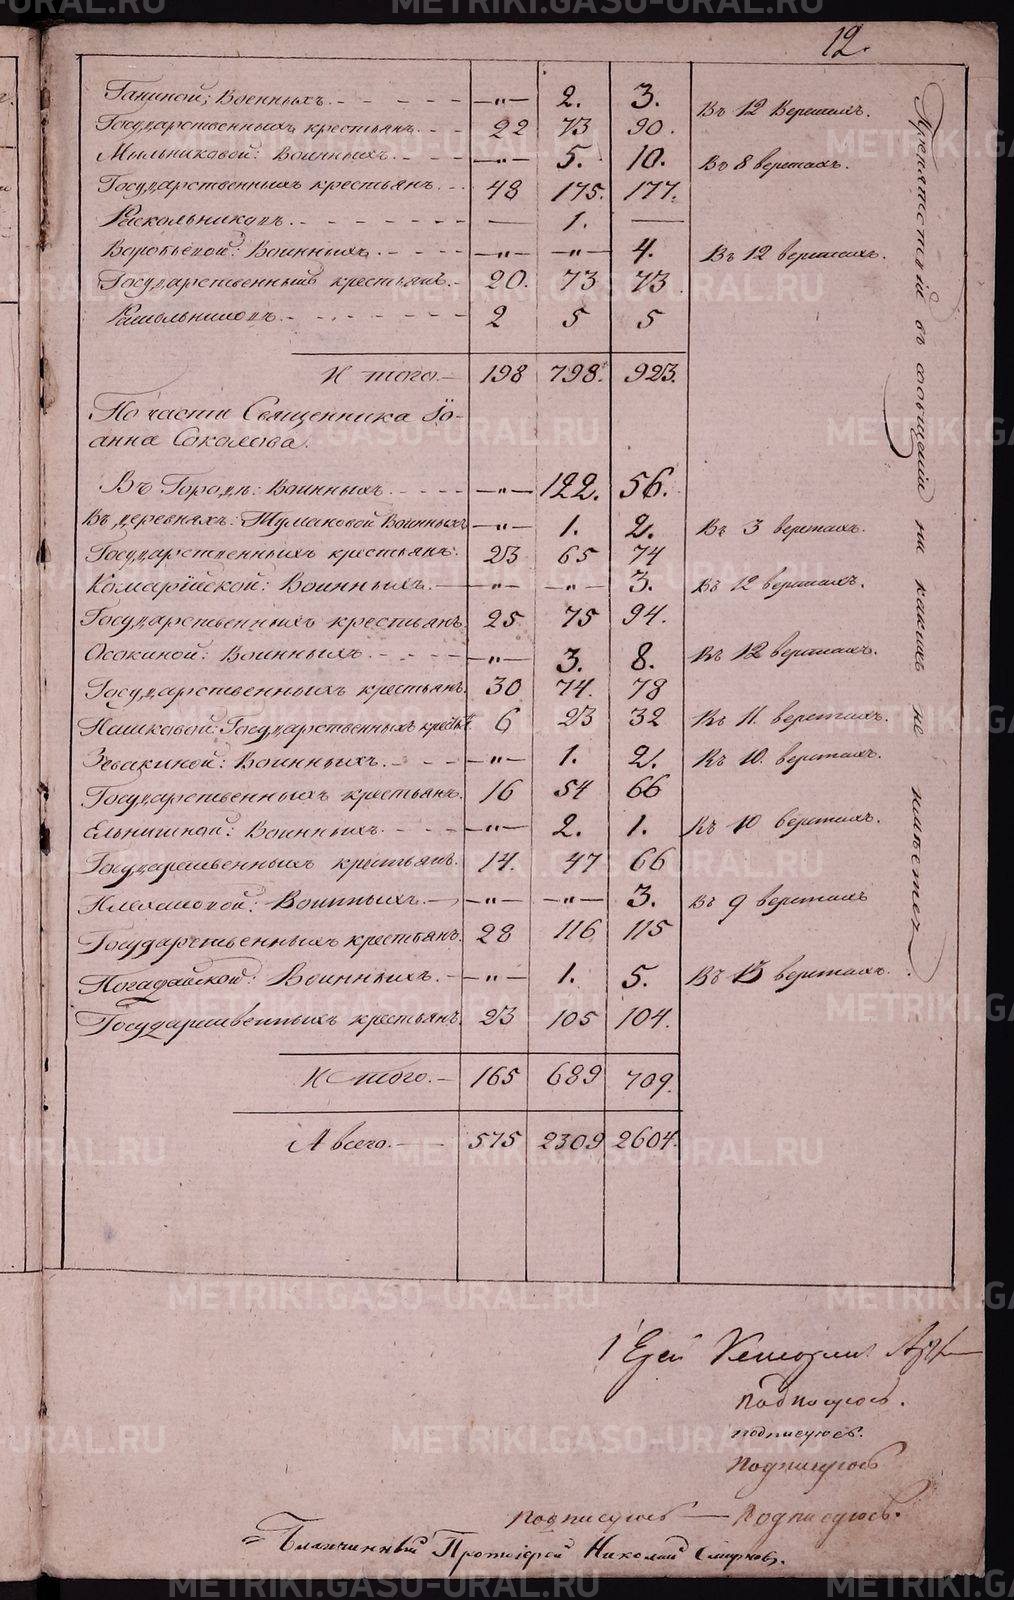 12.
Ганиной; Военныхъ. — „ — 2. 3. Въ 12 Верстахъ.
Государственныхъ крестьянъ. 22 73 90.
Мыльниковой: Военныхъ. — „ — 5. 10. Въ 8 верстахъ.
Государственныхъ крестьянъ. 48 175. 177.
Раскольниковъ. — 1. —
Воробьевой: Военныхъ. — „ — — „ — 4. Въ 12 верстахъ.
Государственныхъ крестьянъ. 20. 73 73.
Раскольниковъ. 2 5 5
Итого. — 198 798. 923.
По части Священника Іо-
анна Соколова.
Въ Городѣ: Военныхъ. — „ — 122. 56.
Въ деревняхъ: Тумаковой Военныхъ — „ — 1. 2. Въ 3 верстахъ.
Государственныхъ крестьянъ. 23 65 74
Комарійской: Военныхъ. — „ — — „ — 3. Въ 12 верстахъ.
Государственныхъ крестьянъ. 25 75 94.
Осокиной: Военныхъ — „ — 3. 8. Въ 12 верстахъ.
Государственныхъ крестьянъ. 30 74. 78
Пашковой: Государственныхъ крестьянъ 6 23 32 Въ 11. верстахъ.
Зевакиной: Военныхъ. — „ — 1. 2. Въ 10. верстахъ.
Государственныхъ крестьянъ. 16 54 66
Ельнишной: Военныхъ. — „ — 2. 1. Въ 10 верстахъ.
Государственныхъ крестьянъ. 14. 47 66
Плехановой: Военныхъ. — „ — — „ — 3. Въ 9 верстахъ
Государственныхъ крестьянъ. 28 116 115
Погадайской: Военныхъ. — „ — 1. 5. Въ 13 верстахъ.
Государственныхъ крестьянъ. 23 105 104.
Итого. — 165 689 709.
А всего. — 575 2309 2604.
Препятствій въ сообщеніи ни какихъ не имѣется.
Подписуюсь.
подписуюсь.
Подписуюсь
подписуюсь — Подписуюсь.
Благочинный Протоіерей Николай Смирновъ.
METRIKI.GASO-URAL.RU